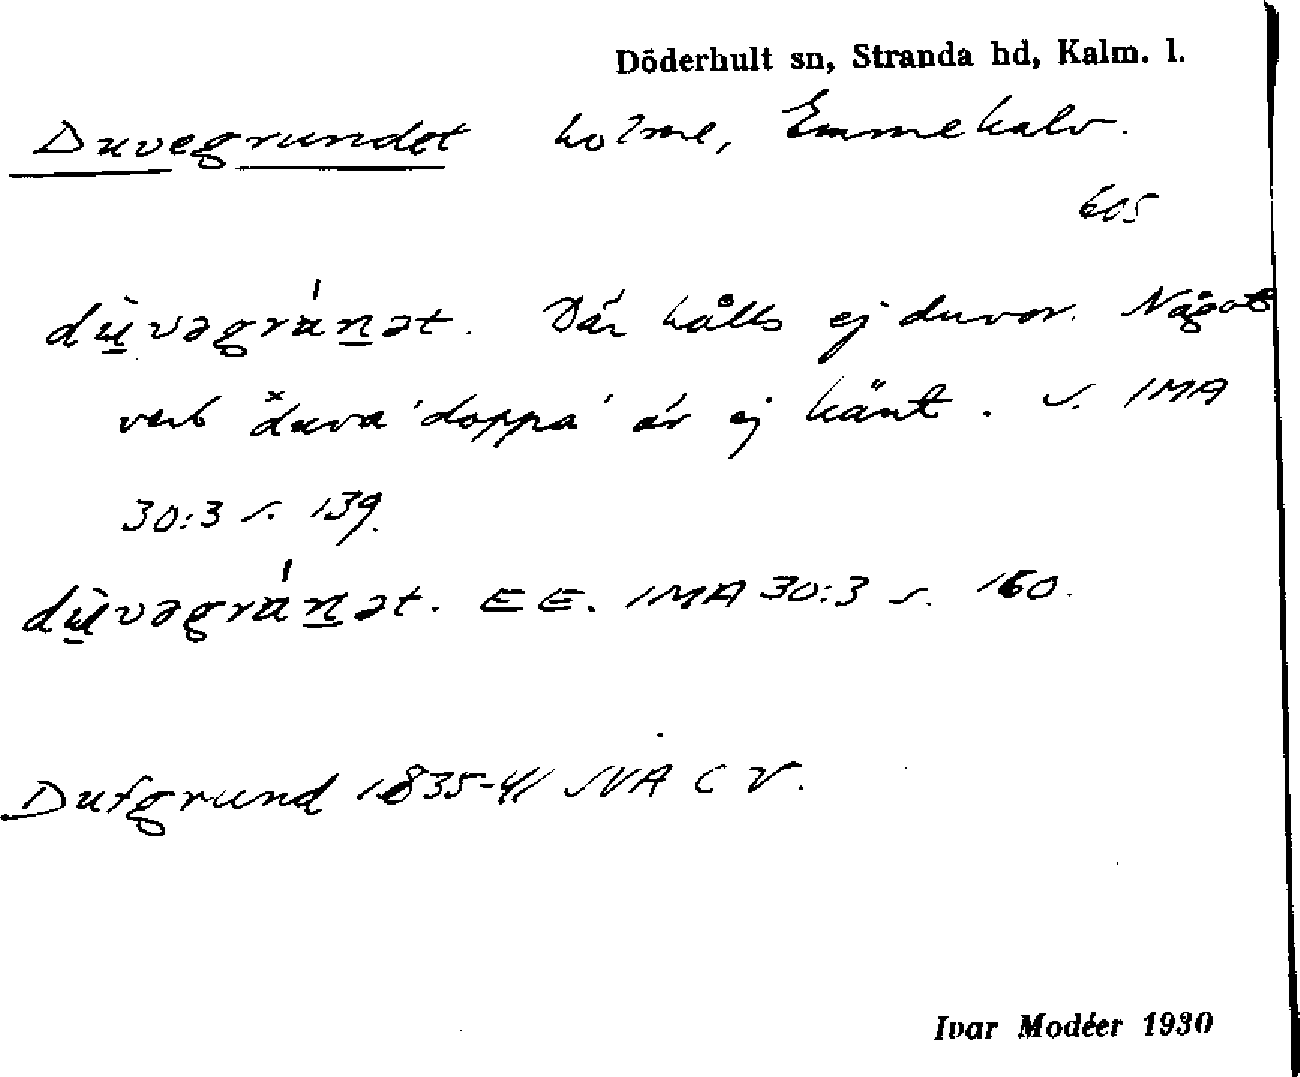 Döderhult sn, Stranda hd, Kalm. l.
Duvegrundet holme, Emmekalv.
605
dùvəgránət. Där hålls ej duvor. Något
verb duva 'doppa' är ej känt. s. IMA
30:3 s. 139.
dùvəgránət. EE. IMA 30:3 s. 160.
Dufgrund 1835-41 SVA C V.
Ivar Modéer 1930